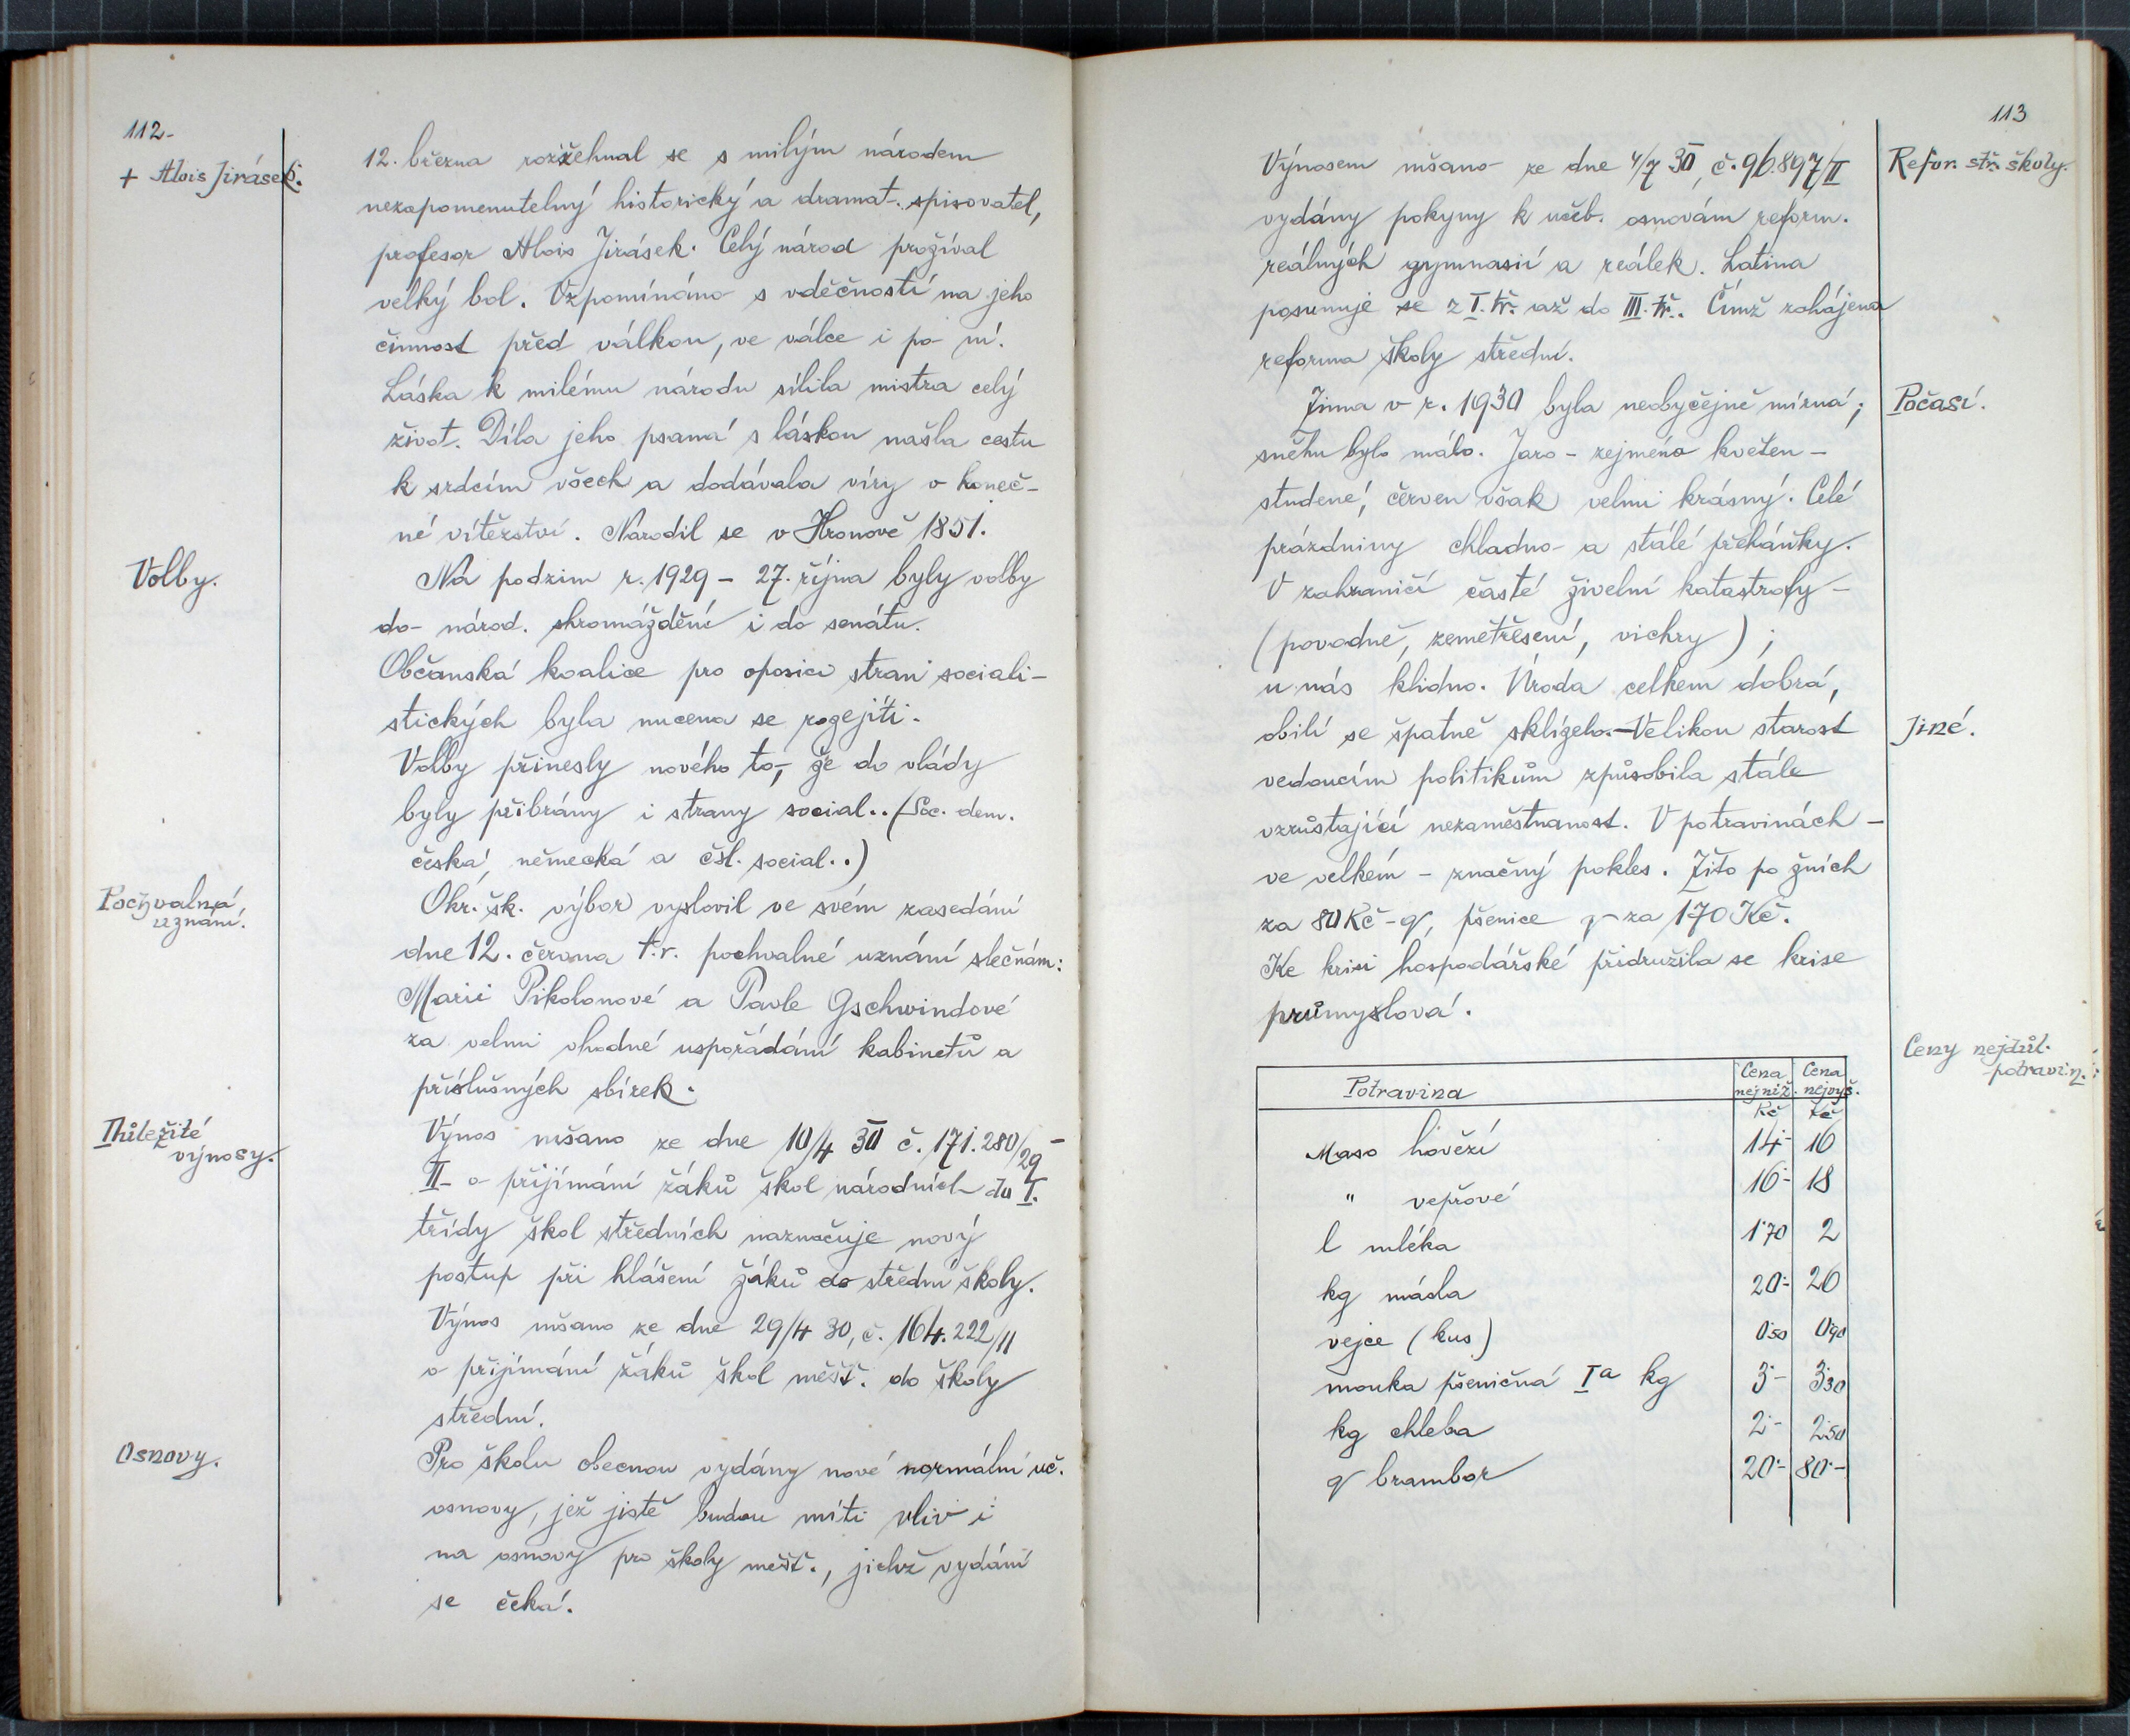 112-
+ Alois Jirásek.
12. března rozžehnal se s milým národem
nezapomenutelný historický a dramat. spisovatel,
profesor Alois Jirásek. Celý národ prožíval
velký bol. Vzpomínáno s vděčností na jeho
činnost před válkou, ve válce i po ní.
Láska k milému národu sílila mistra celý
život. Díla jeho psaná s láskou našla cestu
k srdcím všech a dodávala víry v koneč-
né vítězství. Narodil se v Hronově 1851.
Volby.
Na podzim r. 1929 - 27. října byly volby
do národ. shromáždění i do senátu.
Občanská koalice pro oposici stran sociali-
stických byla nucena se rozejíti.
Volby přinesly nového to, že do vlády
byly přibrány i strany social.. (Soc. dem.
česká, německá a čsl. social..)
Pochvalná
uznání.
Okr. šk. výbor vyslovil ve svém zasedání
dne 12. června t.r. pochvalné uznání slečnám:
Marii Pikolonové a Pavle Gschwindové
za velmi vhodné uspořádání kabinetů a
příslušných sbírek.
Důležité
výnosy.
Výnos mšano ze dne 10/4 30 č. 171.280/29-
II- o přijímání žáků škol národních do I.
třídy škol středních naznačuje nový
postup při hlášení žáků do střední školy.
Výnos mšano ze dne 29/4 30, č. 164.222/II
o přijímání žáků škol měšť. do školy
střední.
Osnovy.
Pro školu obecnou vydány nové normální uč.
osnovy, jež jistě budou míti vliv i
na osnovy pro školy měšť., jichž vydání
se čeká.
113
Refor. stř. školy.
Výnosem mšano ze dne 4/7 30, č. 96.897/II
vydány pokyny k učeb. osnovám reform.
reálných gymnasií a reálek. Latina
posunuje se z I. tř. až do III. tř.. Čímž zahájena
reforma školy střední.
Počasí.
Zima v r. 1930 byla neobyčejně mírná;
sněhu bylo málo. Jaro - zejména květen -
studené, červen však velmi krásný. Celé
prázdniny chladno a stálé přeháňky.
V zahraničí časté živelní katastrofy -
(povodně, zemětřesení, vichry);
u nás klidno. Úroda celkem dobrá,
Jiné.
obilí se špatně sklízelo. - Velikou starost
vedoucím politikům způsobila stále
vzrůstající nezaměstnanost. V potravinách -
ve velkém - značný pokles. Žito po žních
za 80 Kč - q, pšenice q za 170 Kč.
Ke krisi hospodářské přidružila se krise
průmyslová.
Ceny nejdůl.
potravin.:
Potravina Cena nejniž. Cena nejvyš.
Kč Kč
Maso hovězí 14·- 16
" vepřové 16·- 18
l mléka 1·70 2
kg másla 20·- 26
vejce (kus) 0·50 0·90
mouka pšeničná Ia kg 3·- 3·30
kg chleba 2·- 2·50
q brambor 20·- 80·-